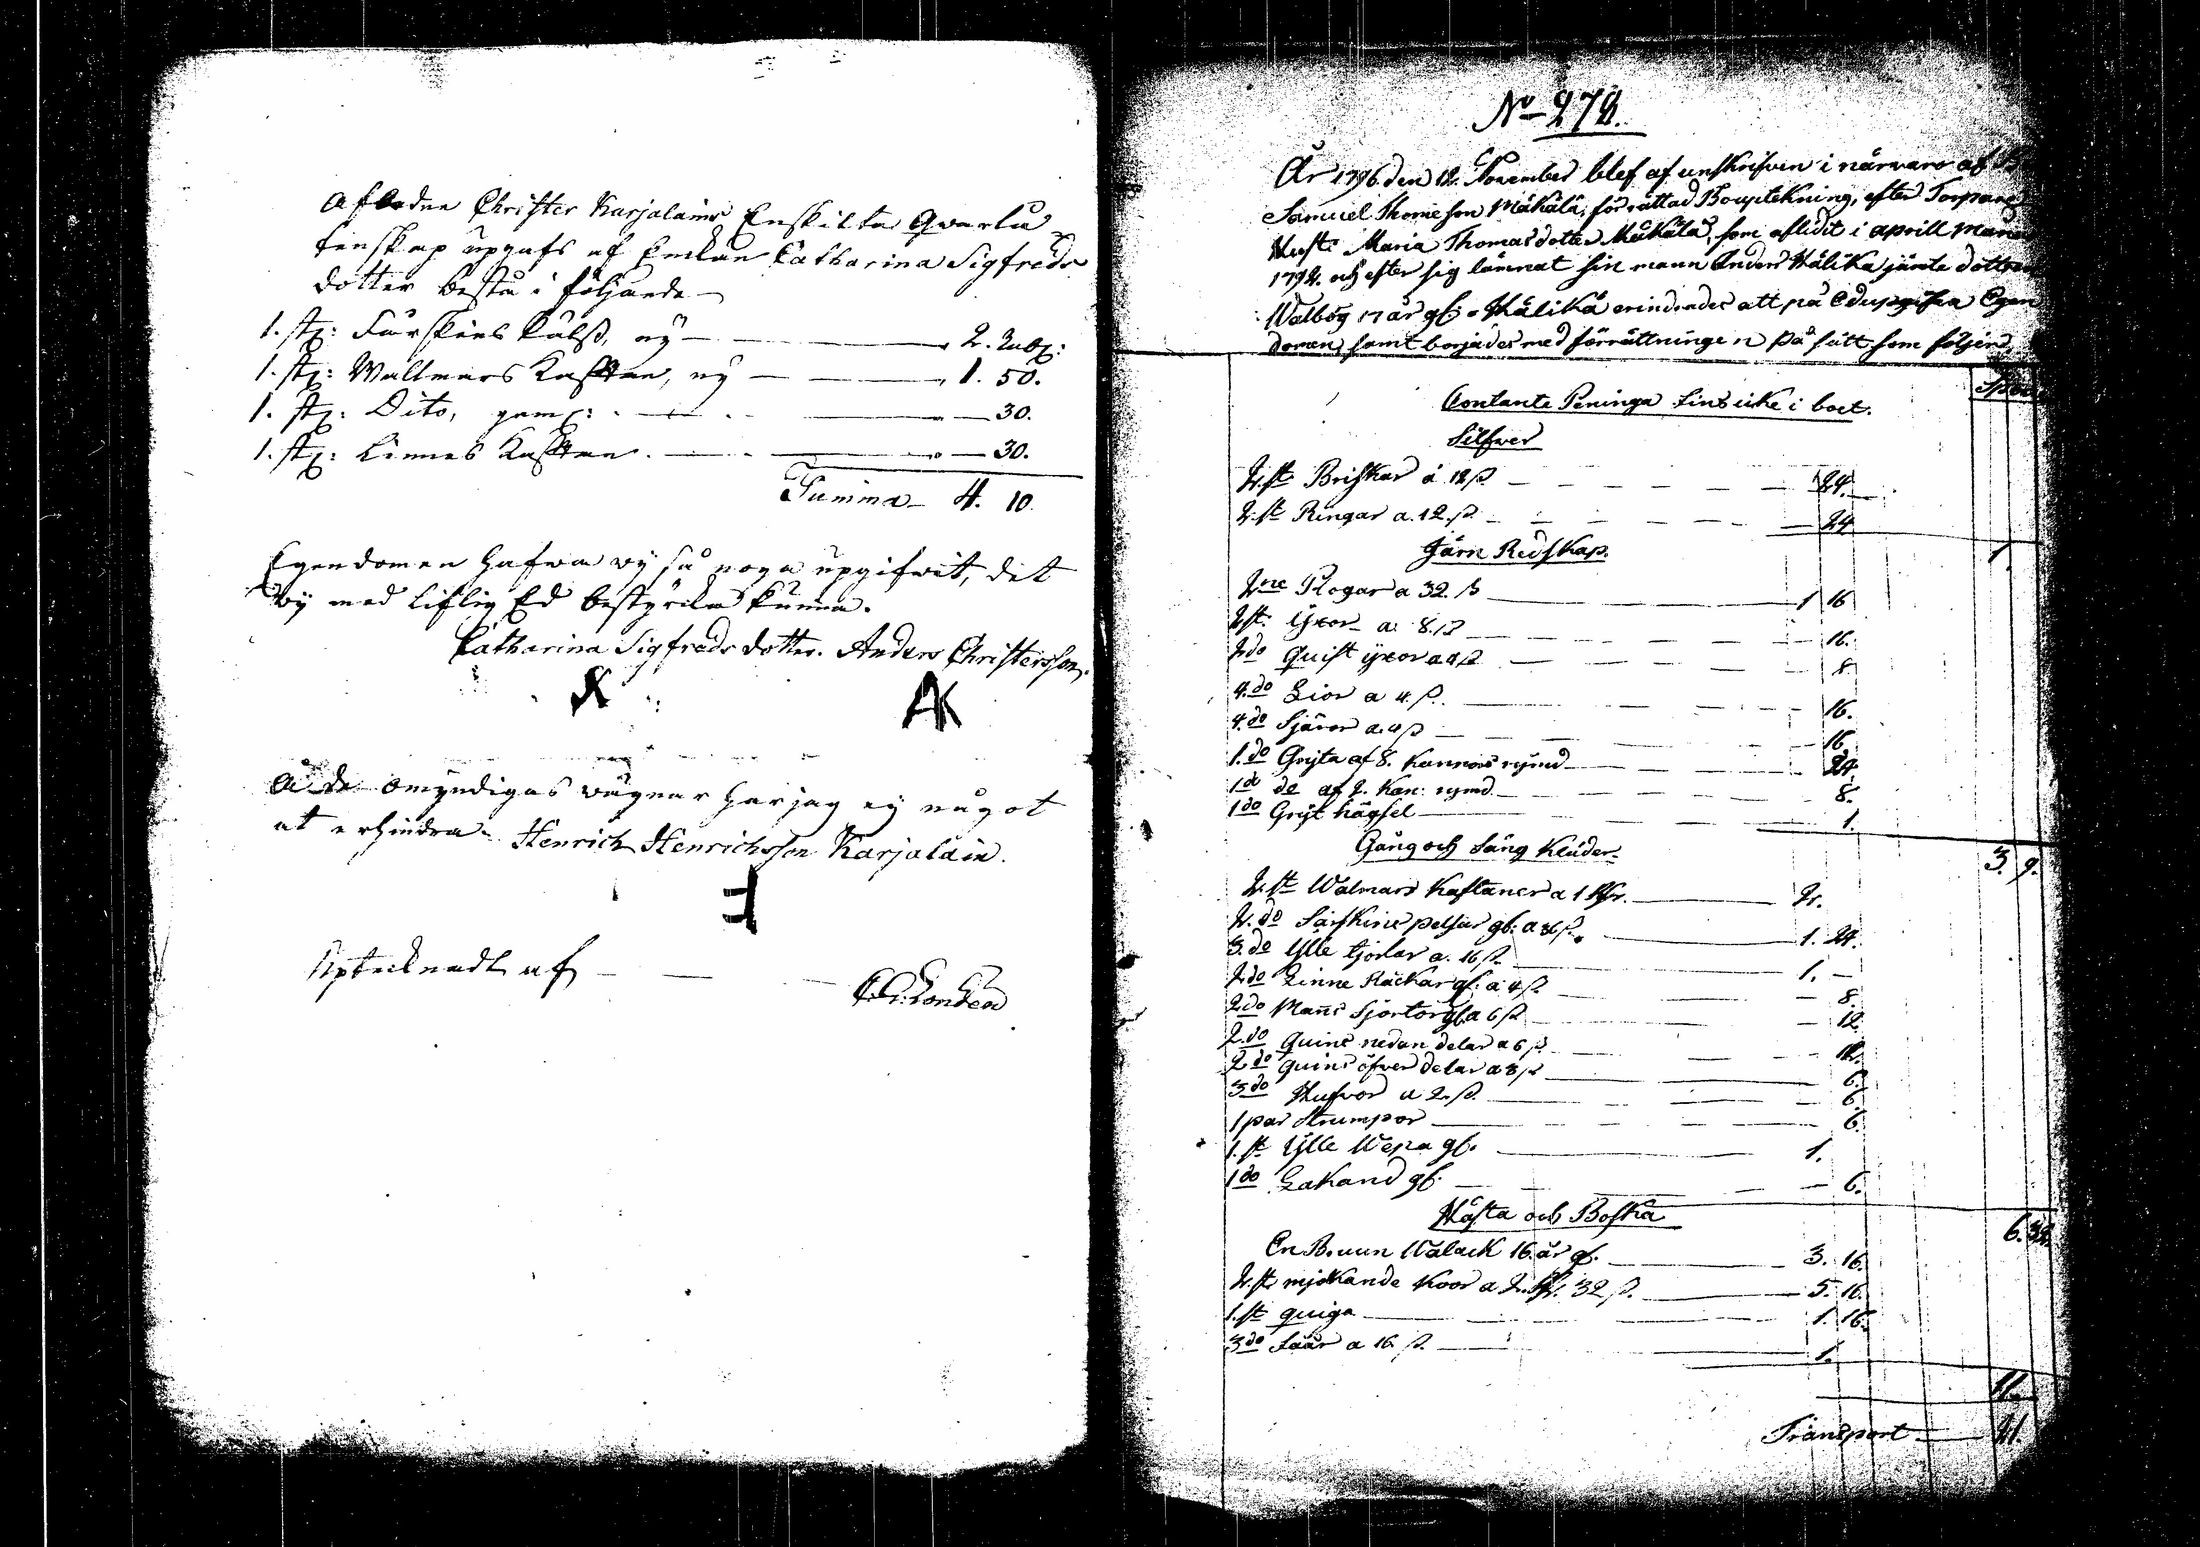 Afledne Christer Karjalains Enskilta Qvarlå
tenskap upgafs af Enkan Catharina Sigfreds
dotter bestå i följande
1. st: Fårskins Pälss, ny 2. Rub:
1. st: Wallmars Kasttan, ny 1. 50.
1. st: Dito, gaml: 30.
1. st: Linnes Kasttan 30.
Summa 4. 10
Egendomen hafva vy så noga upgifvit, det
vy med liflig Ed bestyrka kunna.
Catharina Sigfreds dotter. Anders Christersson.
AK
omyndigas vägnar har jag ey något
at erhindra. Henrich Henrichsson Karjalain.
Uptecknadt af
Londen
No 272.
År 1796 den 12. November blef af unskrifven i närvaro af
Samuel Thomeson Mäkälä, förrättad Bouptekning, efter Torpare
Hust: Maria Thomasdotter Mäkälä, som aflidit i aprill Måna
1792. och efter sig lämnat sin mann Anders Hälikä jämte dotter
Walbog 17 år gl: Hälikä erindrades att på Ed upgifva Egen
domen, samt borjades med förrättningen på sätt som följer
Contante Peninga fins icke i boet.
Silfver
2. st Briskar á 12 ß 24.
2. st Ringar a. 12. ß 24
1.
Järn Redskap.
2ne Plogar a 32. ß 1 16
2st. Yxor a. 8. ß 16.
2do Quist yxor a 4 ß 8
4. do Lior a 4. ß. 16.
4. do Sjäror a. 4 ß 16
1. do Gryta af 8. kannors rymd 24.
1d do af 2. kan: rymd 8.
1do Gryt hägsel 1.
3. 9.
Gång och Säng Kläder
2. st Walmars Kaftaner a 1 Rr. 2.
2. do Fårskins pelsar gl: a 36 ß. 1. 24.
3. do Ylle tjorlar a. 16 ß. 1. —
2do Linne Häckar gl: a 4 ß 8.
2do Mans Sjortor gl. a 6 ß 12
2. do Quins nedan delar a 6 ß 12.
2 do quins öfver delar a 3 ß 6.
3do Hufvor a 2. ß. 6.
1 par Strumpor 6.
1. st Ylle Wepa gl. 1.
1do Lakand gl. 6.
6. 32.
Hästa och Boskå
En Bruun Walack 16. år gl. 3. 16.
2. st mjölkande Koor a 2. Rr. 32 ß. 5. 16.
1. st quiga 1. 16.
3do Fåår a 16. ß. 1.
11.
Transport 21.